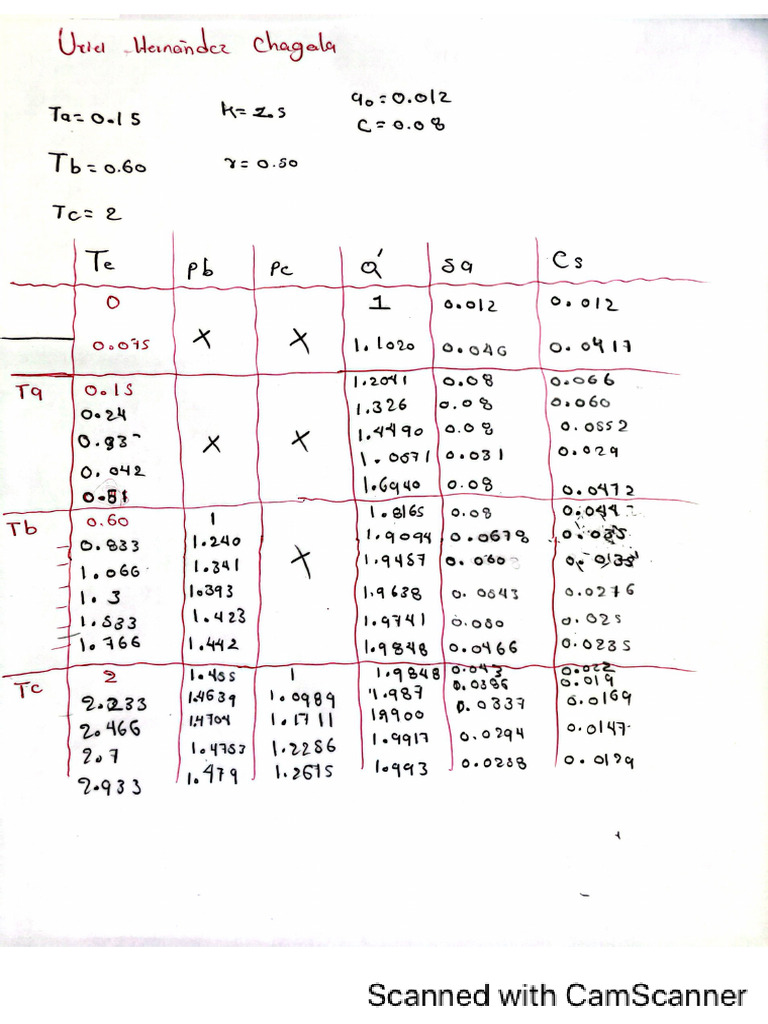 Uriel Hernández Chagala
Ta = 0.15 k = 2.5 a0 = 0.012
c = 0.08
Tb = 0.60 r = 0.50
Tc = 2
Te Pb Pc Q' Sa Cs
0 1 0.012 0.012
0.075 X X 1.1020 0.046 0.0417
Ta 0.15 1.2041 0.08 0.066
0.24 1.326 0.08 0.060
0.33 X X 1.4490 0.08 0.0552
0.042 1.0671 0.031 0.029
0.51 1.6940 0.08 0.0472
Tb 0.60 1 1.8165 0.08 0.044
0.833 1.240 X 1.9094 0.0678 0.035
1.066 1.341 1.9457 0.060
1.3 1.393 1.9638 0.0543 0.0276
1.533 1.423 1.9741 0.050 0.025
1.766 1.442 1.9848 0.0466 0.0235
Tc 2 1.455 1 1.9848 0.043 0.022
2.233 1.4639 1.0989 1.987 0.0386 0.019
2.466 1.4704 1.1711 1.9900 0.0337 0.0169
2.7 1.4753 1.2286 1.9917 0.0294 0.0147
2.933 1.479 1.2675 1.993 0.0258 0.0129
Scanned with CamScanner